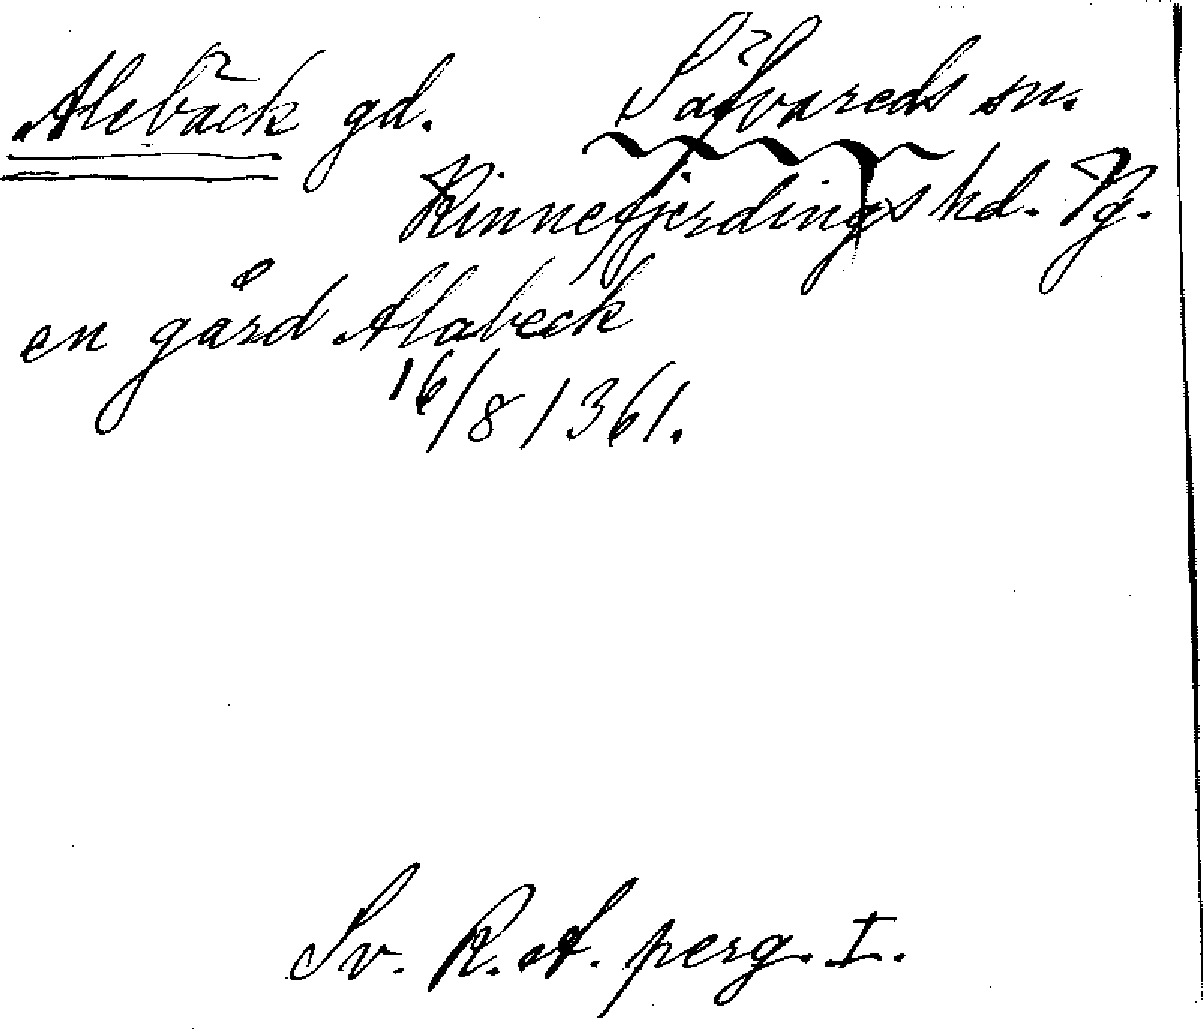 Alebäck gd. Säfvareds sn.
Kinnefjerdings hd. Vg.
en gård Alabeck
16/8 1361.
Sv. R. A. perg. I.